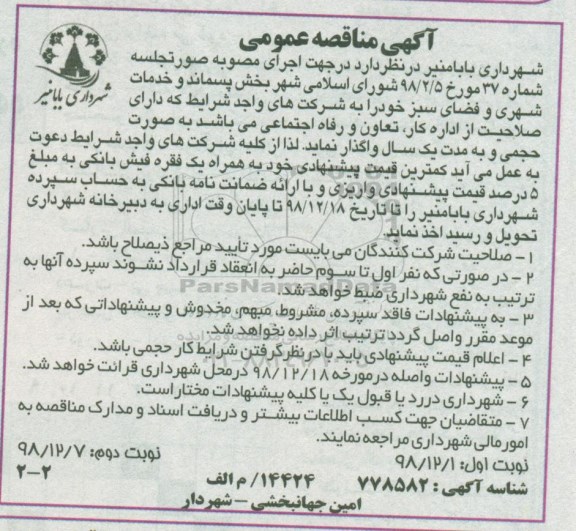 آگهی مناقصه عمومی
شهرداری بابامنیر
شهرداری بابامنیر در نظر دارد در جهت اجرای مصوبه صورتجلسه
شماره ۳۷ مورخ ۹۸/۲/۵ شورای اسلامی شهر بخش پسماند و خدمات
شهری و فضای سبز خود را به شرکت های واجد شرایط که دارای
صلاحیت از اداره کار، تعاون و رفاه اجتماعی می باشد به صورت
حجمی و به مدت یک سال واگذار نماید. لذا از کلیه شرکت های واجد شرایط دعوت
به عمل می آید کمترین قیمت پیشنهادی خود به همراه یک فقره فیش بانکی به مبلغ
۵ درصد قیمت پیشنهادی واریزی و یا ارائه ضمانت نامه بانکی به حساب سپرده
شهرداری بابامنیر را تا تاریخ ۹۸/۱۲/۱۸ تا پایان وقت اداری به دبیرخانه شهرداری
تحویل و رسید اخذ نماید.
۱- صلاحیت شرکت کنندگان می بایست مورد تأیید مراجع ذیصلاح باشد.
۲- در صورتی که نفر اول تا سوم حاضر به انعقاد قرارداد نشوند سپرده آنها به
ترتیب به نفع شهرداری ضبط خواهد شد.
ParsNamadData
۳- به پیشنهادات فاقد سپرده، مشروط، مبهم، مخدوش و پیشنهاداتی که بعد از
موعد مقرر واصل گردد ترتیب اثر داده نخواهد شد.
۴- اعلام قیمت پیشنهادی باید با در نظر گرفتن شرایط کار حجمی باشد.
۵- پیشنهادات واصله در مورخه ۹۸/۱۲/۱۸ در محل شهرداری قرائت خواهد شد.
۶- شهرداری در رد یا قبول یک یا کلیه پیشنهادات مختار است.
۷- متقاضیان جهت کسب اطلاعات بیشتر و دریافت اسناد و مدارک مناقصه به
امور مالی شهرداری مراجعه نمایند.
نوبت اول: ۹۸/۱۲/۱ نوبت دوم: ۹۸/۱۲/۷
شناسه آگهی: ۷۷۸۵۸۲ ۱۴۴۲۴/ م الف ۲-۲
امین جهانبخشی - شهردار